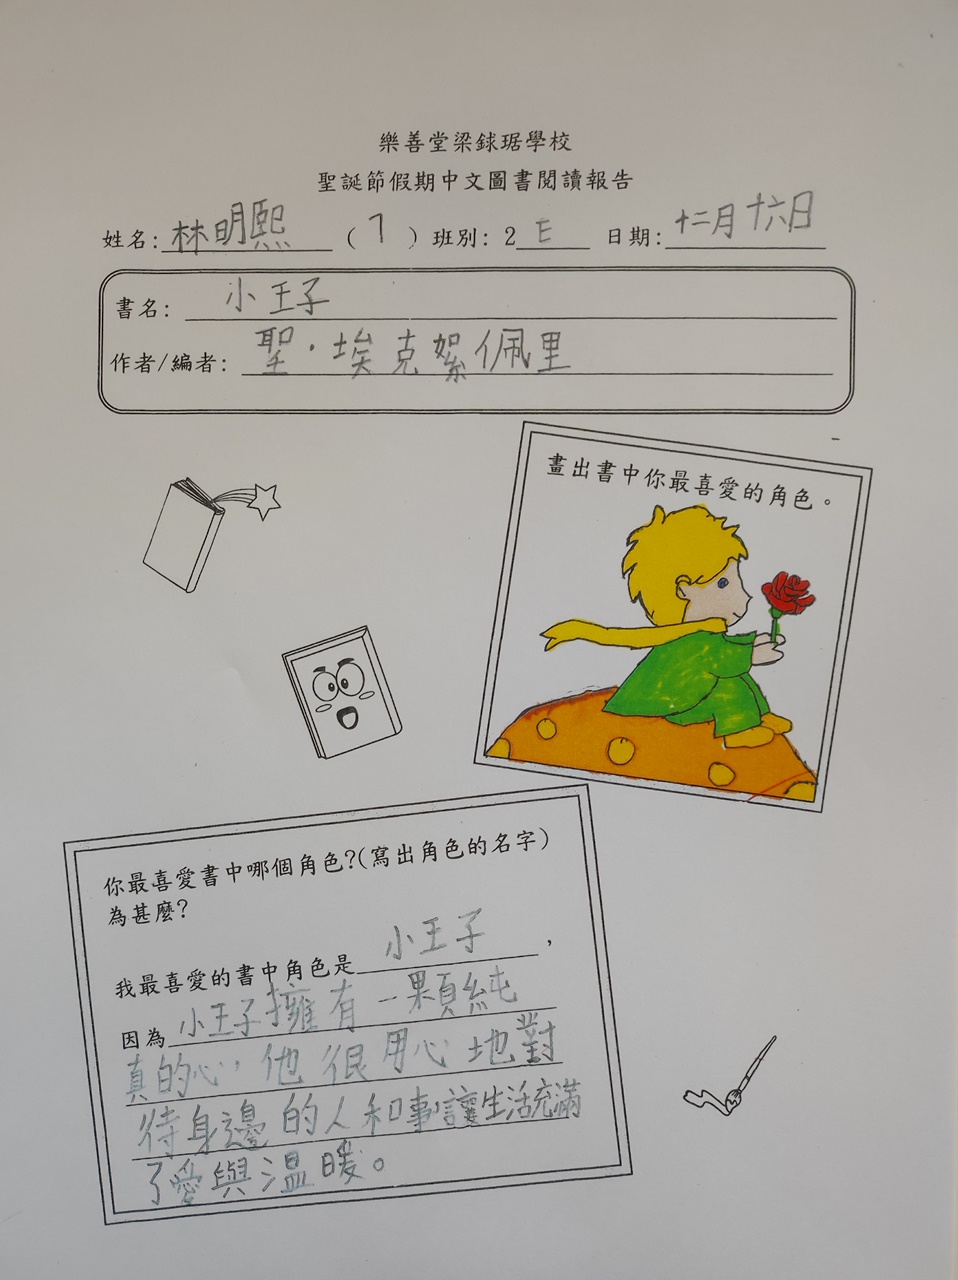 樂善堂梁銶琚學校
聖誕節假期中文圖書閱讀報告
姓名:林明熙(7)班別:2E 日期:十二月十六日
書名:小王子
作者/編者:聖·埃克絮佩里
畫出書中你最喜愛的角色。
你最喜愛書中哪個角色?(寫出角色的名字)
為甚麼?
我最喜愛的書中角色是小王子,
因為小王子擁有一顆純
真的心,他很用心地對
待身邊的人和事,讓生活充滿
了愛與溫暖。